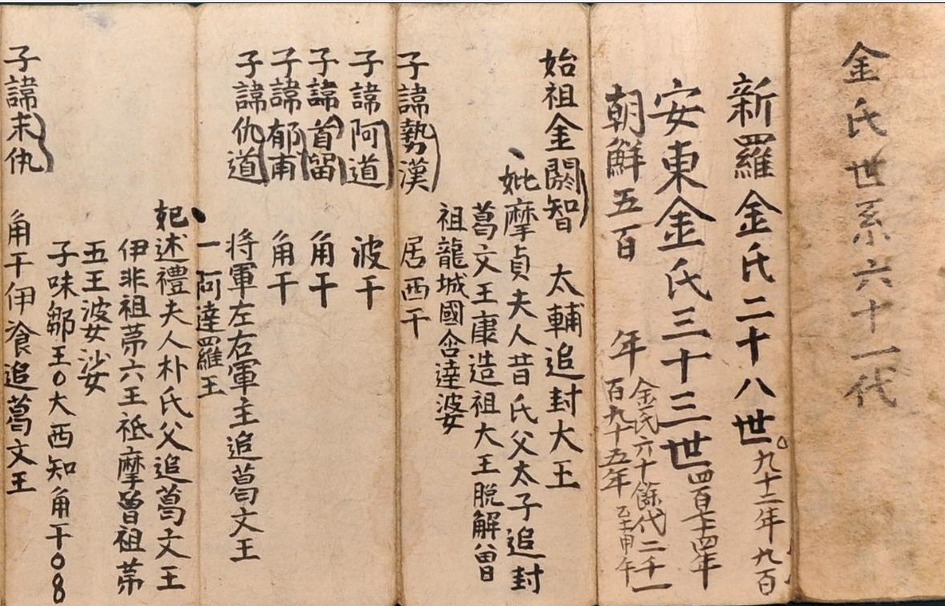 金氏世系六十一代
新羅金氏二十八世 九十二年 九百
安東金氏三十三世 四百十四年
朝鮮五百 年 金氏六十餘代二千一
百九十五年 甲午
始祖金閼智 太輔追封大王
妣摩貞夫人昔氏父太子追封
葛文王康造祖大王脫解曾
祖龍城國含達婆
子諱勢漢 居西干
子諱阿道 波干
子諱首留 角干
子諱郁甫 角干
子諱仇道 将軍左右軍主追葛文王
一阿達羅王
妃述禮夫人朴氏父追葛文王
伊非祖苐六王祗摩曾祖苐
五王婆娑
子味鄒王○大西知角干○8
子諱末仇 角干伊飡追葛文王